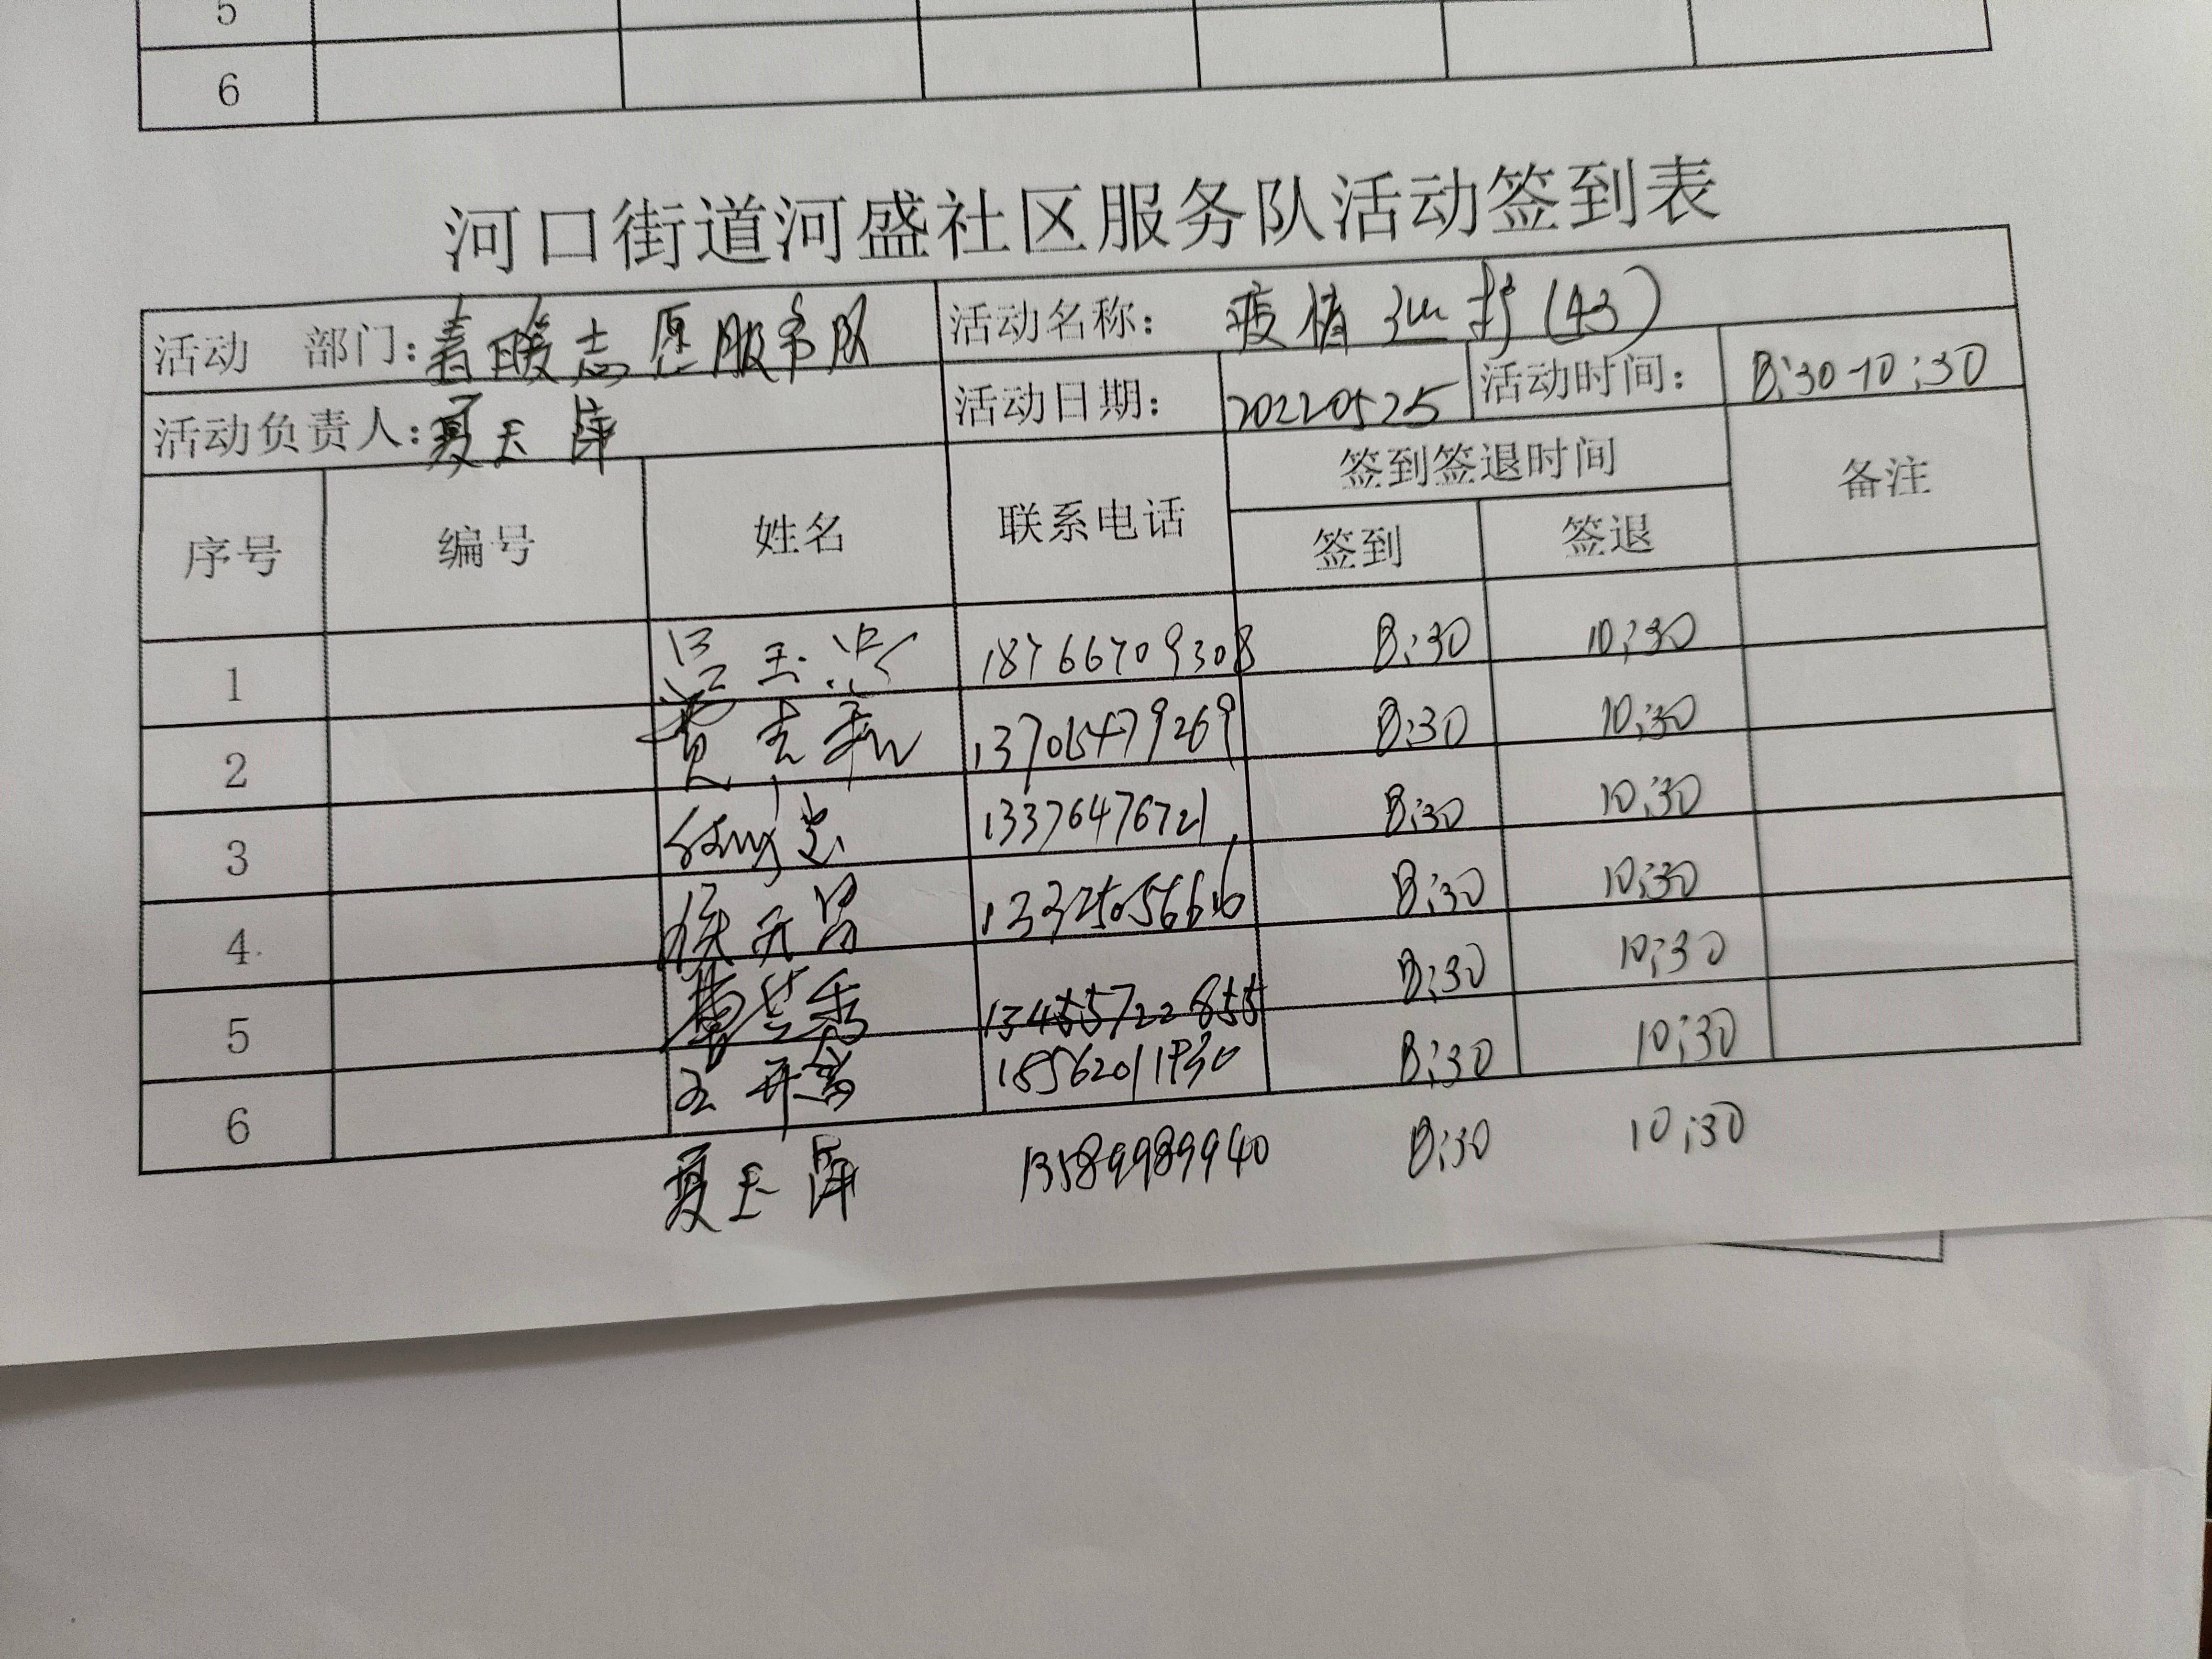 5
6
河口街道河盛社区服务队活动签到表
活动 部门：春暖志愿服务队 活动名称： 疫情 (43)
活动负责人：夏玉萍 活动日期： 20220525 活动时间： 8:30-10:30
序号 编号 姓名 联系电话 签到签退时间 备注
签到 签退
1 18766709308 8:30 10:30
2 13705479269 8:30 10:30
3 13376476721 8:30 10:30
4 8:30 10:30
5 13455722855 8:30 10:30
6 8:30 10:30
夏玉萍 13589989940 8:30 10:30